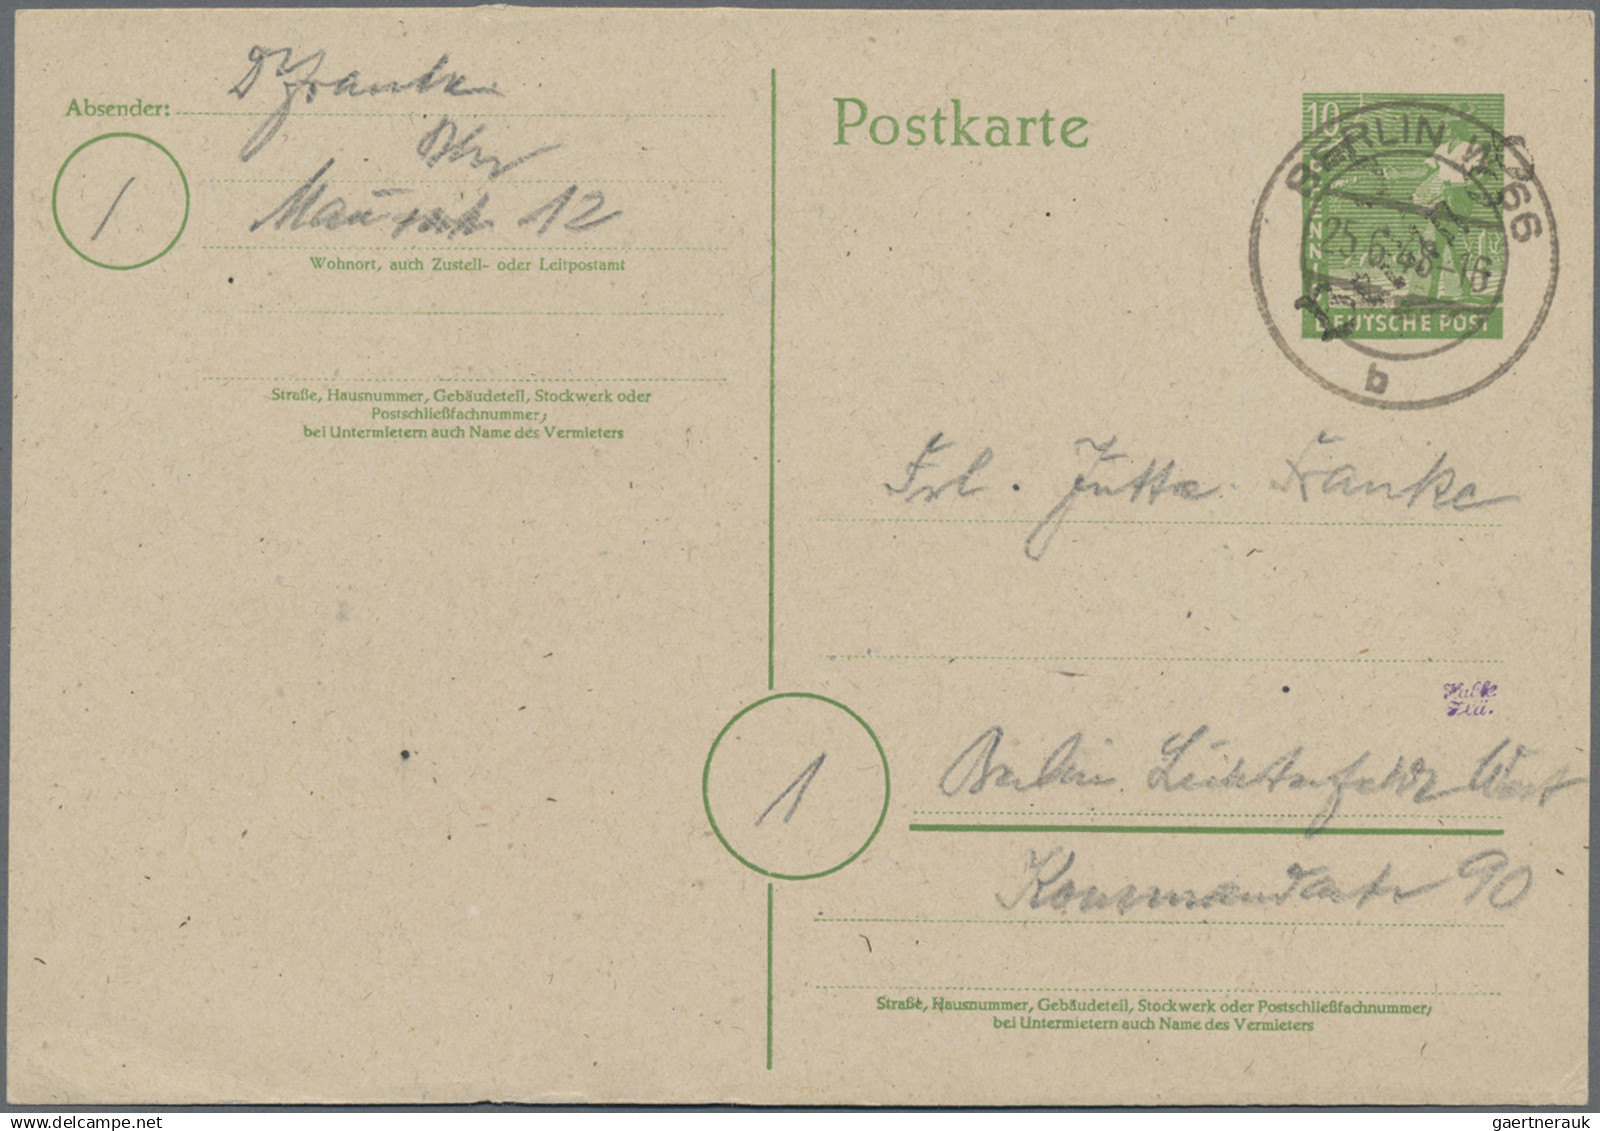 Absender:
Dr Franke
Bln
Mauerstr 12
Wohnort, auch Zustell- oder Leitpostamt
Straße, Hausnummer, Gebäudeteil, Stockwerk oder
Postschließfachnummer;
bei Untermietern auch Name des Vermieters
1
Postkarte
10
BERLIN W 66
25.6.48-16
b
DEUTSCHE POST
Frl. Jutta Franke
1
Berlin Lichterfelde West
Kommandantstr 90
Straße, Hausnummer, Gebäudeteil, Stockwerk oder Postschließfachnummer;
bei Untermietern auch Name des Vermieters
gaertnerauk